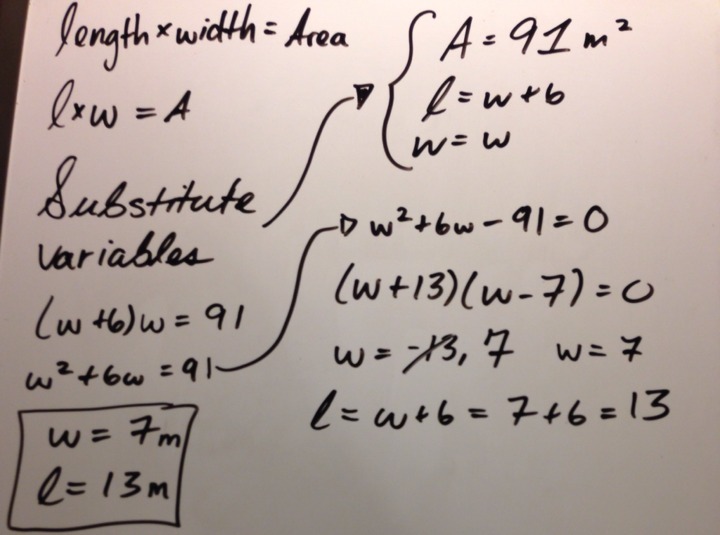 length × width = Area
l × w = A
Substitute
variables
(w+6)w = 91
w²+6w = 91
A = 91 m²
l = w+6
w = w
w²+6w-91=0
(w+13)(w-7)=0
w = -13, 7 w = 7
l = w+6 = 7+6 = 13
w = 7m
l = 13m